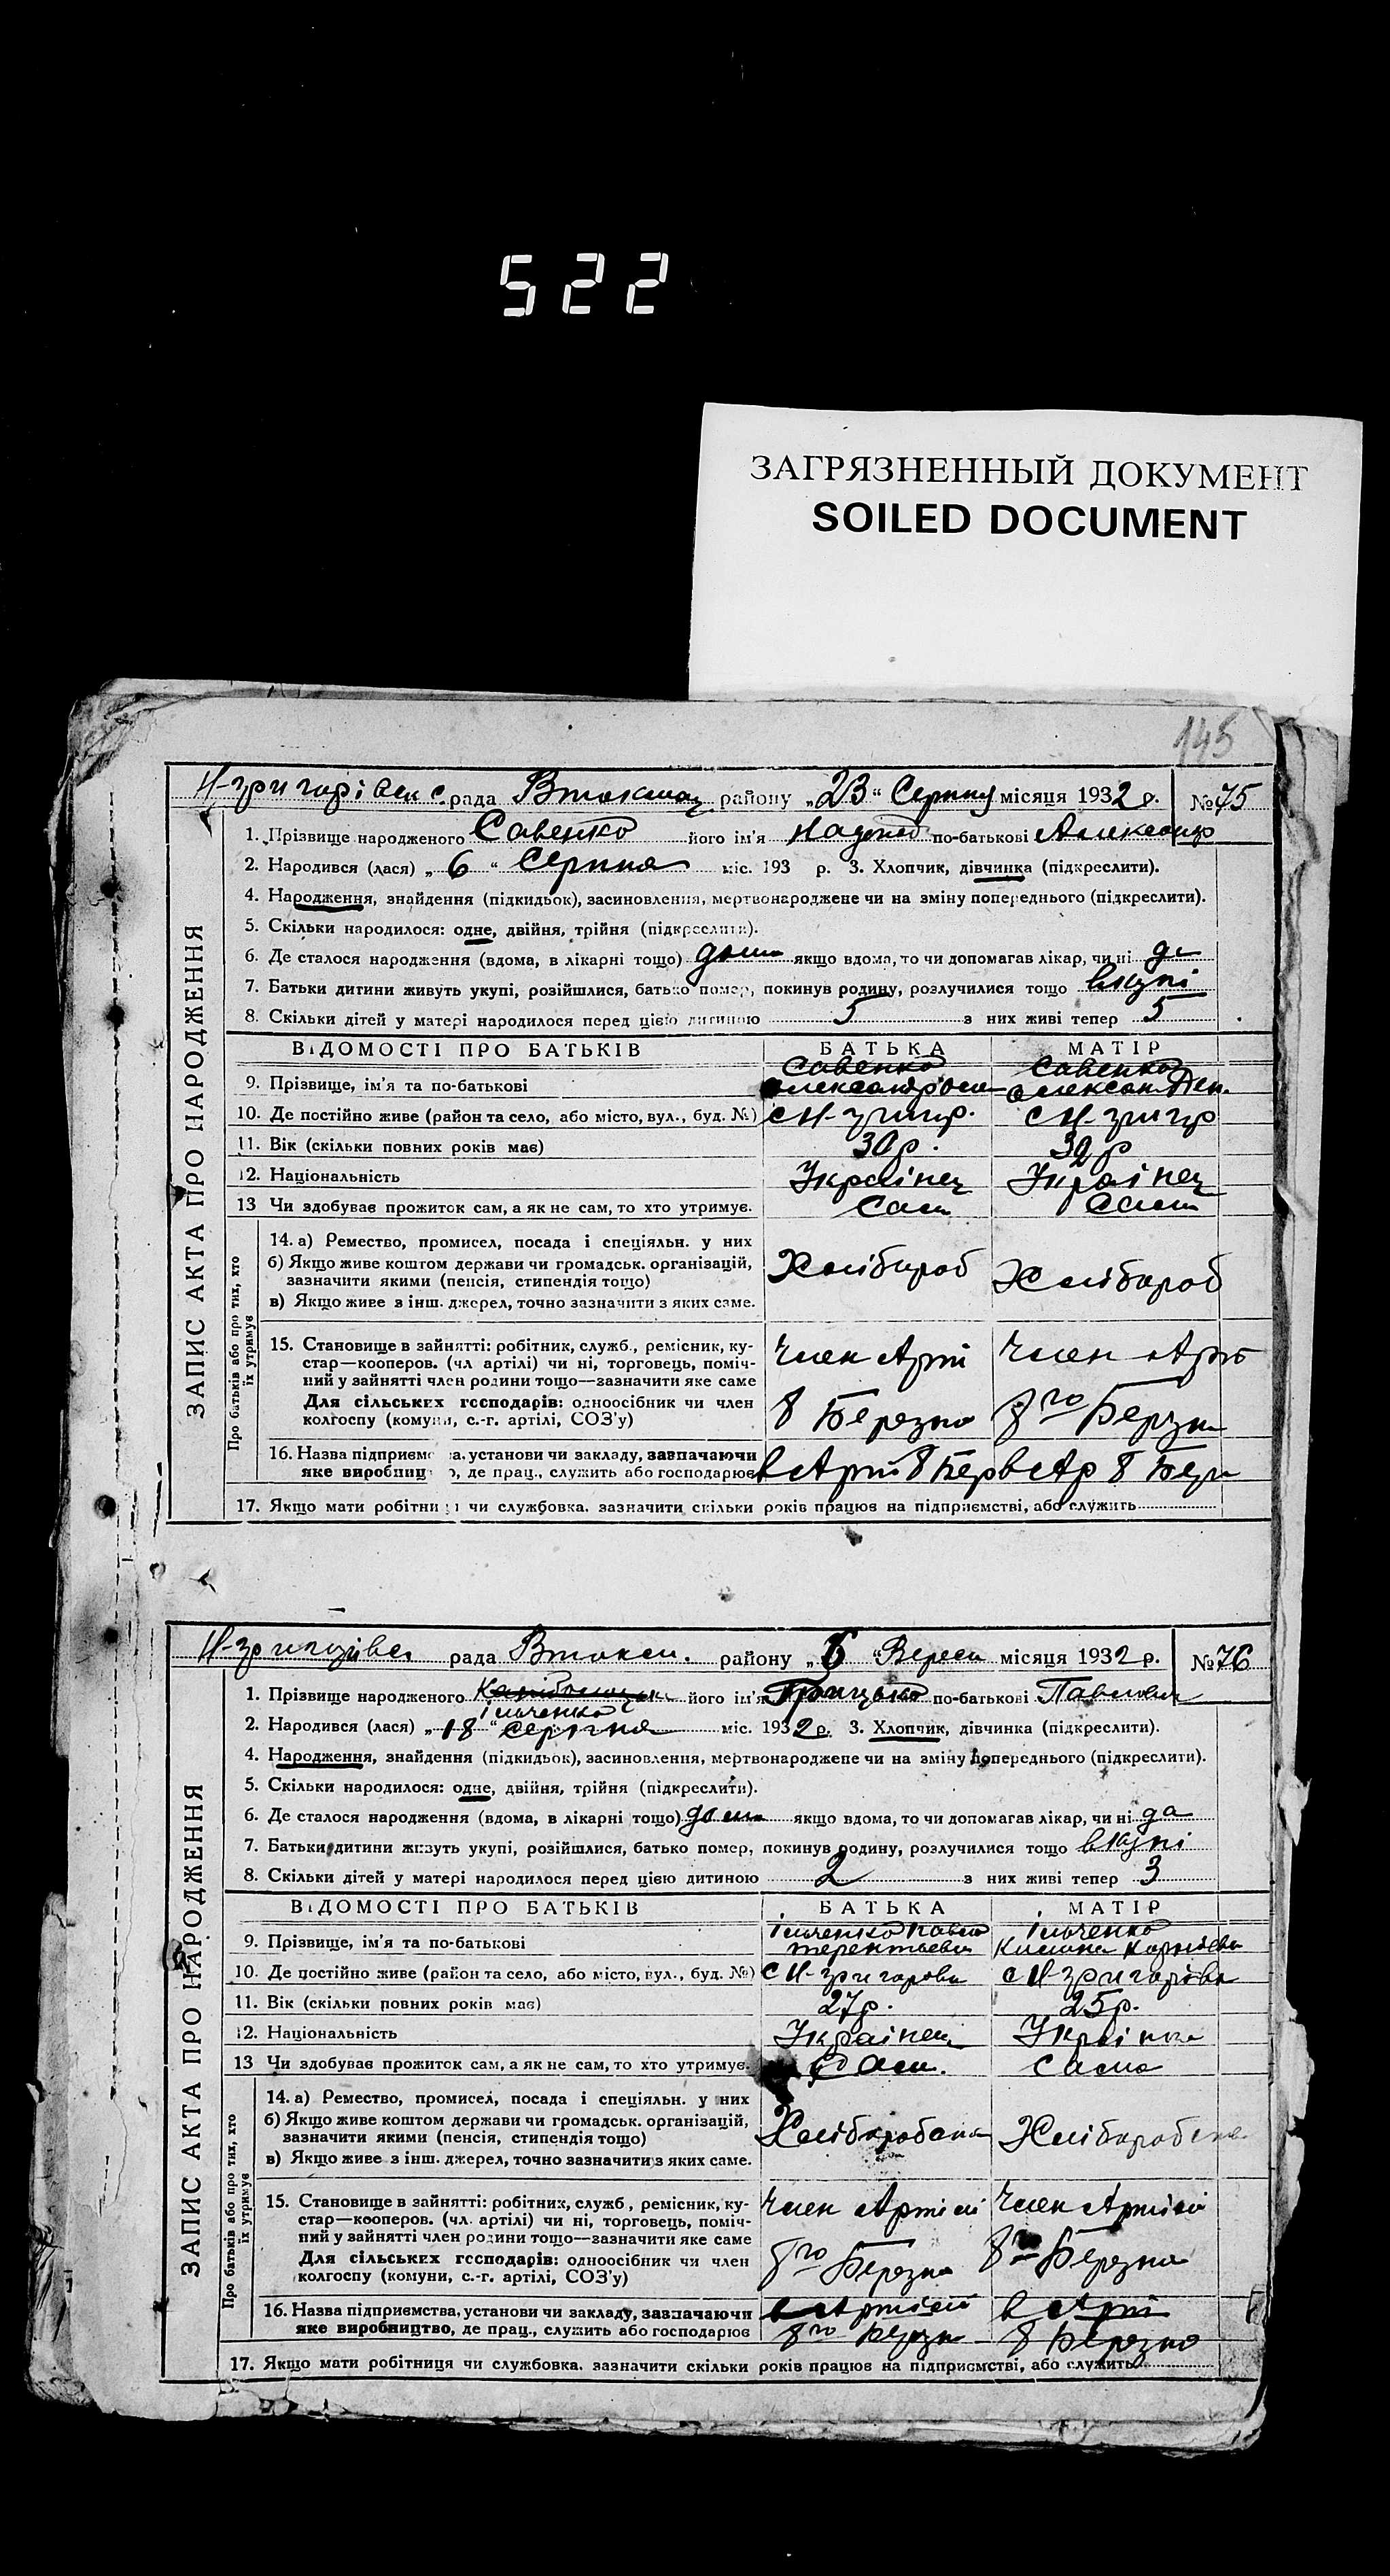 522
ЗАГРЯЗНЕННЫЙ ДОКУМЕНТ
SOILED DOCUMENT
145
рада Втокмац району „23“ Серпня місяця 1932 р. № 75
1. Прізвище народженого Савенко його ім'я по-батькові Александр
2. Народився (лася) „ 6 “ Серпня міс. 193 р. 3. Хлопчик, дівчинка (підкреслити).
4. Народження, знайдення (підкидьок), засиновлення, мертвонароджене чи на зміну попереднього (підкреслити).
5. Скільки народилося: одне, двійня, трійня (підкреслити).
6. Де сталося народження (вдома, в лікарні тощо) дома якщо вдома, то чи допомагав лікар, чи ні да
7. Батьки дитини живуть укупі, розійшлися, батько помер, покинув родину, розлучилися тощо вкупі
8. Скільки дітей у матері народилося перед цією дитиною 5 з них живі тепер 5
ЗАПИС АКТА ПРО НАРОДЖЕННЯ
ВІДОМОСТІ ПРО БАТЬКІВ БАТЬКА МАТІР
9. Прізвище, ім'я та по-батькові Савенко Савенко
10. Де постійно живе (район та село, або місто, вул., буд. №)
11. Вік (скільки повних років має) 30 р. 32 р
12. Національність Українец Українец
13 Чи здобуває прожиток сам, а як не сам, то хто утримує. Сам Сам
Про батьків або про тих, хто їх утримує
14. а) Ремество, промисел, посада і спеціяльн. у них
б) Якщо живе коштом держави чи громадськ. організацій,
зазначити якими (пенсія, стипендія тощо) Хлібороб Хлібороб
в) Якщо живе з інш. джерел, точно зазначити з яких саме.
15. Становище в зайнятті: робітник, служб., ремісник, ку-
стар—кооперов. (чл. артілі) чи ні, торговець, поміч- Член Арті Член Арт
ний у зайнятті член родини тощо—зазначити яке саме
Для сільських господарів: одноосібник чи член 8 Березня 8го Березня
колгоспу (комуни, с.-г. артілі, СОЗ'у)
16. Назва підприємства, установи чи закладу, зазначаючи
яке виробництво, де прац., служить або господарює в Арті 8 Бер в Ар 8 Бер
17. Якщо мати робітниця чи службовка. зазначити скільки років працює на підприємстві, або служить
рада Втокм. району „ 6 “ Вересн місяця 1932 р. № 76
1. Прізвище народженого його ім'я Грицько по-батькові Павлович
Ільченко
2. Народився (лася) „ 18 “ серпня міс. 1932 р. 3. Хлопчик, дівчинка (підкреслити).
4. Народження, знайдення (підкидьок), засиновлення, мертвонароджене чи на зміну попереднього (підкреслити).
5. Скільки народилося: одне, двійня, трійня (підкреслити).
6. Де сталося народження (вдома, в лікарні тощо) дома якщо вдома, то чи допомагав лікар, чи ні да
7. Батьки дитини живуть укупі, розійшлися, батько помер, покинув родину, розлучилися тощо вкупі
8. Скільки дітей у матері народилося перед цією дитиною 2 з них живі тепер 3
ЗАПИС АКТА ПРО НАРОДЖЕННЯ
ВІДОМОСТІ ПРО БАТЬКІВ БАТЬКА МАТІР
Ільченко Павло Ільченко
9. Прізвище, ім'я та по-батькові
10. Де постійно живе (район та село, або місто, вул., буд. №)
11. Вік (скільки повних років має) 27 р. 25 р.
12. Національність Українец Українка
13 Чи здобуває прожиток сам, а як не сам, то хто утримує. Сам. Сама
Про батьків або про тих, хто їх утримує
14. а) Ремество, промисел, посада і спеціяльн. у них
б) Якщо живе коштом держави чи громадськ. організацій,
зазначити якими (пенсія, стипендія тощо)
в) Якщо живе з інш. джерел, точно зазначити з яких саме.
15. Становище в зайнятті: робітник, служб., ремісник, ку- Член Артілі Член Артілі
стар—кооперов. (чл. артілі) чи ні, торговець, поміч-
ний у зайнятті член родини тощо—зазначити яке саме
Для сільських господарів: одноосібник чи член 8го Березня 8го Березня
колгоспу (комуни, с.-г. артілі, СОЗ'у)
16. Назва підприємства, установи чи закладу, зазначаючи в Артілі в Арті
яке виробництво, де прац., служить або господарює 8го Березн 8 Березня
17. Якщо мати робітниця чи службовка. зазначити скільки років працює на підприємстві, або служить